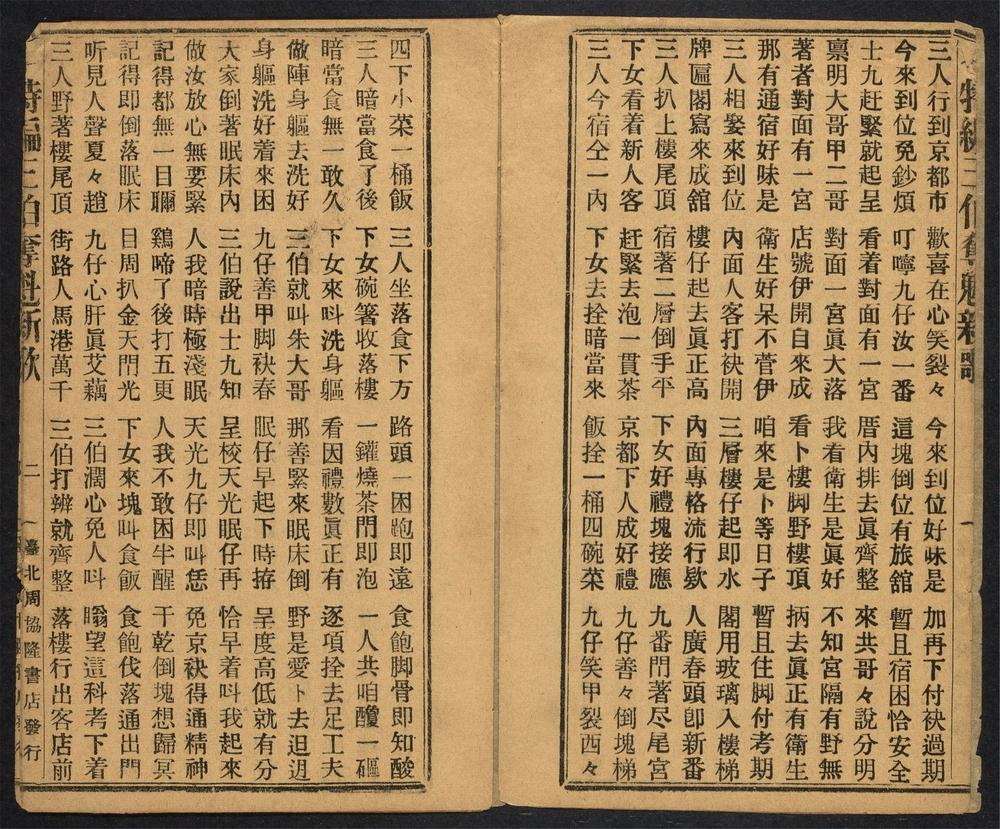 特編三伯奪魁新歌
三人行到京都市 歡喜在心笑裂々 今來到位好味是 加再下付袂過期
今來到位免鈔煩 叮嚀九仔汝一番 這塊倒位有旅舘 暫且宿困恰安全
士九赶緊就起呈 看着對面有一宮 厝內排去眞齊整 來共哥々說分明
禀明大哥甲二哥 對面一宮眞大落 我看衛生是眞好 不知宮隔有野無
著者對面有一宮 店號伊開自來成 看卜樓脚野樓頂 抦去眞正有衛生
那有通宿好味是 衛生好呆不管伊 咱來是卜等日子 暫且住脚付考期
三人相娶來到位 內面人客打袂開 三層樓仔起即水 閣用玻璃入樓梯
牌匾閣寫來成舘 樓仔起去眞正高 內面專格流行欵 人廣春頭卽新番
三人扒上樓尾頂 宿著二層倒手平 下女好禮塊接應 九番門著尽尾宮
下女看着新人客 赶緊去泡一貫茶 京都下人成好禮 九仔善々倒塊梯
三人今宿仝一內 下女去拴暗當來 飯拴一桶四碗菜 九仔笑甲裂西々
一
四下小菜一桶飯 三人坐落食下方 路頭一困跑即遠 食飽脚骨即知酸
三人暗當食了後 下女碗箸收落樓 一鑵燒茶門即泡 一人共咱醆一碅
暗當食無一敢久 下女來叫洗身軀 看因禮數眞正有 逐項拴去足工夫
做陣身軀去洗好 三伯就叫朱大哥 那善緊來眠床倒 野是愛卜去𨑨迌
身軀洗好着來困 九仔善甲脚袂春 眠仔早起下時拵 呈度高低就有分
大家倒著眠床內 三伯說出士九知 呈校天光眠仔再 恰早着叫我起來
做汝放心無要緊 人我暗時極淺眠 天光九仔即叫恁 免京袂得通精神
記得都無一目聊 鷄啼了後打五更 人我不敢困半醒 干乾倒塊想歸冥
記得即倒落眠床 目周扒金天門光 下女來塊叫食飯 食飽伐落通出門
听見人聲夏々趙 九仔心肝眞艾藕 三伯濶心免人叫 瞈望這科考下着
三人野著樓尾頂 街路人馬港萬千 三伯打辨就齊整 落樓行出客店前
特編三伯奪魁新歌
二
臺北周協隆書店發行